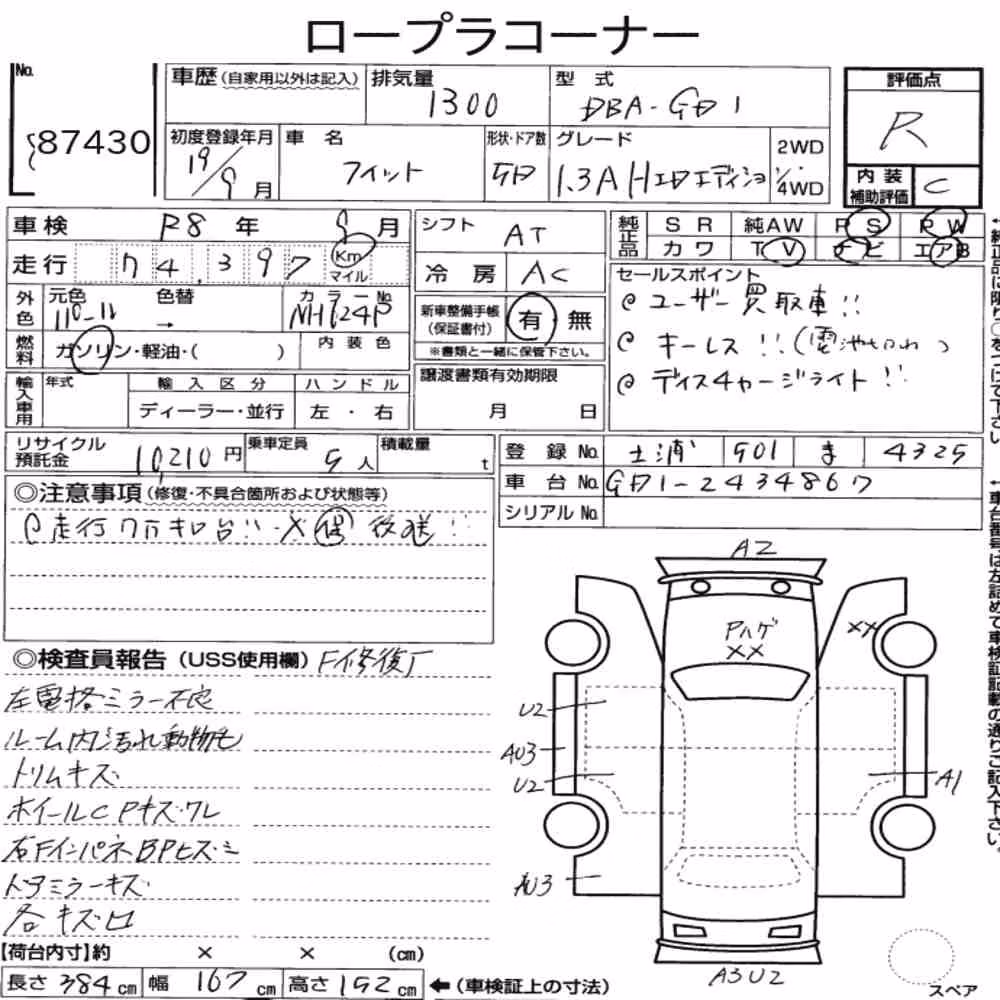 ロープラコーナー
No.
87430
車歴 (自家用以外は記入)
排気量
1300
型式
DBA-GD1
評価点
R
内装補助評価
C
初度登録年月
19/9月
車名
フィット
形状・ドア数
5D
グレード
1.3A HIDエディション
2WD
4WD
車検 R8年 9月
走行 74,397 Km マイル
シフト
AT
冷房
AC
純正品
SR 純AW PS PW
カワ TV ナビ エアB
セールスポイント
ユーザー買取車!!
キーレス!!(電池切れ)
ディスチャージライト!!
外色
元色
色替
カラーNo.
→
NH624P
燃料
ガソリン・軽油・( )
内装色
新車整備手帳(保証書付)
有 無
※書類と一緒に保管下さい。
輸入車用
年式
輸入区分
ハンドル
ディーラー・並行
左・右
譲渡書類有効期限
月 日
リサイクル預託金
10,210円
乗車定員
5人
積載量
t
登録No.
土浦 501 ま 4325
車台No.
GD1-2434867
シリアルNo.
◎注意事項(修復・不具合箇所および状態等)
走行7万キロ台!!
◎検査員報告 (USS使用欄) F修復有
左電格ミラー不良
ルーム内汚れ動物毛
トリムキズ
ホイールCPキズワレ
右FインパネBPヒズミ
ドアミラーキズ
各キズ凹
A2
Pハゲ
XX
XX
U2
AU3
U2
A1
AU3
A3U2
スペア
【荷台内寸】約 × × (cm)
長さ384cm 幅167cm 高さ152cm ←(車検証上の寸法)
←純正品に限り○をつけて下さい
←車台番号は左詰めで車検証記載の通りご記入下さい。